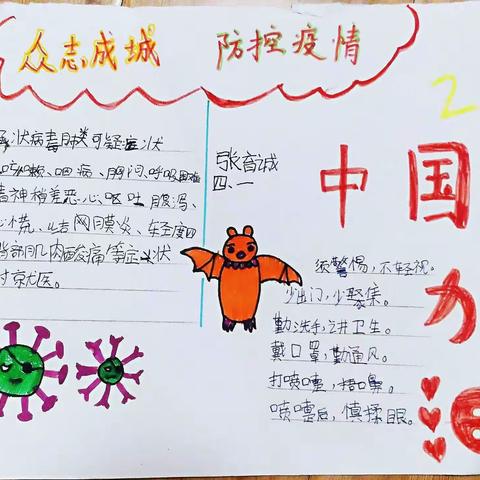 众志成城 防控疫情
冠状病毒肺炎可疑症状
咳嗽、咽痛、胸闷、呼吸困难
精神稍差恶心、呕吐、腹泻、
心慌、结网膜炎、轻度四
背部肌肉酸痛等症状
时就医。
张育诚
四、一
2
中国
力
须警惕，不轻视。
少出门，少聚集。
勤洗手，讲卫生。
戴口罩，勤通风。
打喷嚏，捂口鼻。
喷嚏后，慎揉眼。